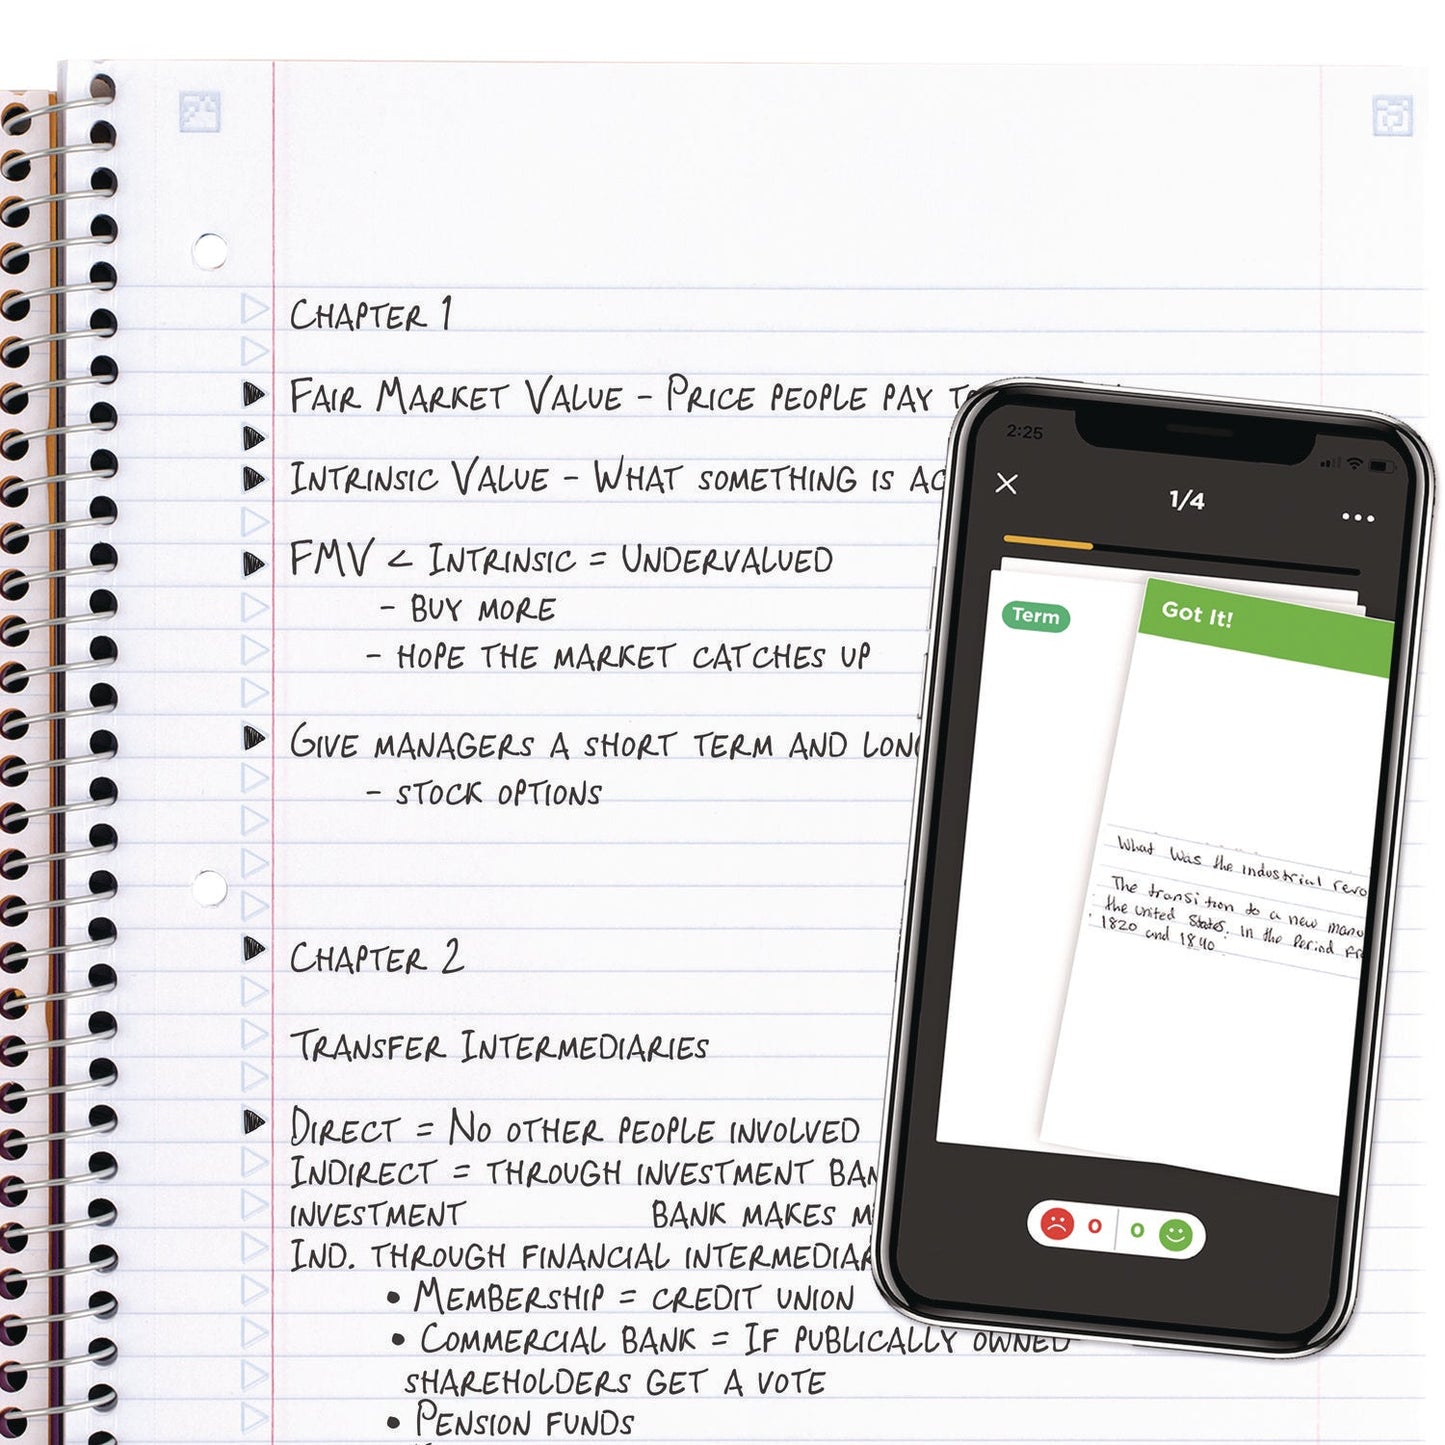 CHAPTER 1
FAIR MARKET VALUE - PRICE PEOPLE PAY
INTRINSIC VALUE - WHAT SOMETHING IS
FMV < INTRINSIC = UNDERVALUED
- BUY MORE
- HOPE THE MARKET CATCHES UP
GIVE MANAGERS A SHORT TERM AND
- STOCK OPTIONS
CHAPTER 2
TRANSFER INTERMEDIARIES
DIRECT = NO OTHER PEOPLE INVOLVED
INDIRECT = THROUGH INVESTMENT
INVESTMENT BANK MAKES
IND. THROUGH FINANCIAL
• MEMBERSHIP = CREDIT UNION
• COMMERCIAL BANK = IF PUBLICALLY OWNED
SHAREHOLDERS GET A VOTE
• PENSION FUNDS
2:25
1/4
Term
Got It!
What Was the industrial
The transition to a new
the united States. In the Period
1820 and 1840
0 0